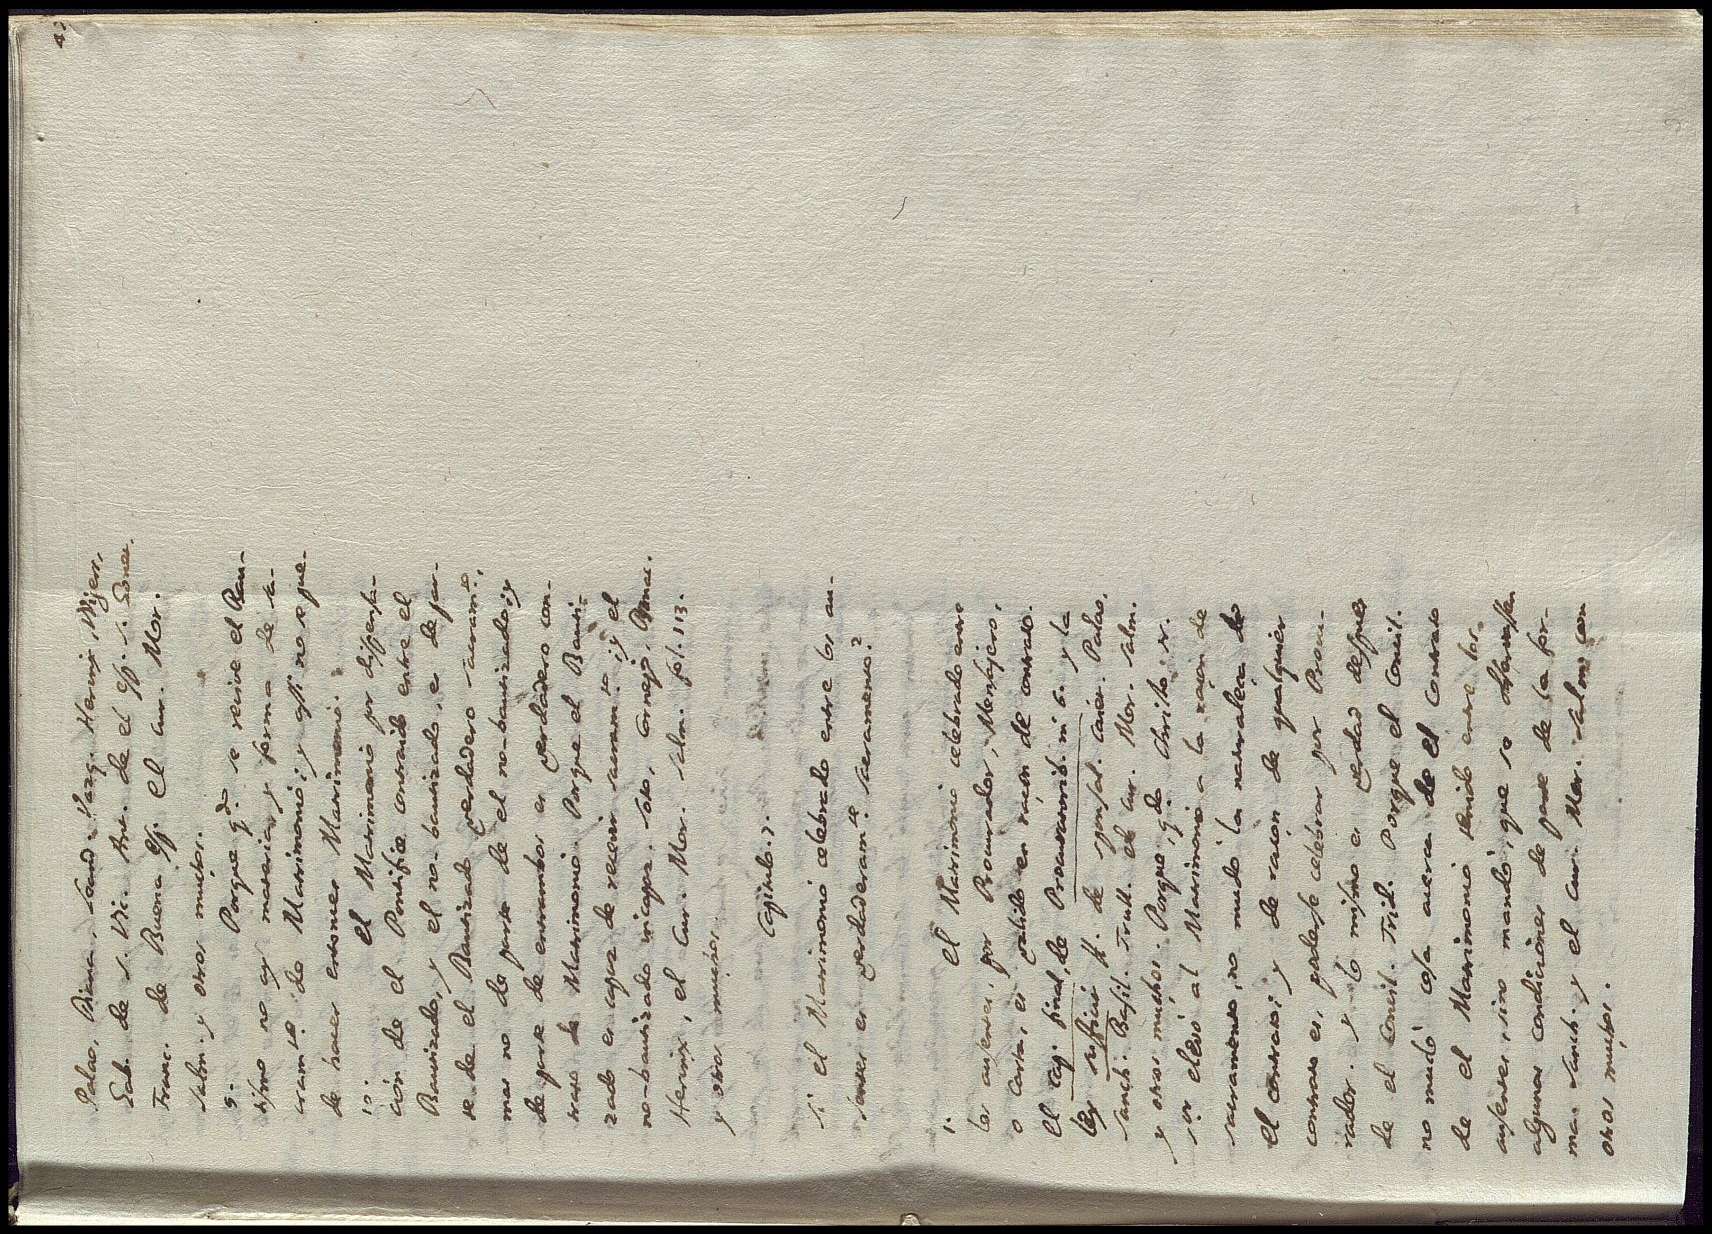 42
Palao, Diana, Sanch. Vazq. Herinx, Wigers,
Gab. de S. Vic. Ant. de el Sp. S. Bonac.
Franc. de Buena Esp. el Cur. Mor.
Salm. y otros muchos.
9. Porque q.do se recive el Bau-
tismo no ay materia, y forma de Sa-
cram.to de Matrimonio; y assi no se pue-
de hacer entonces Matrimonio.
10. El Matrimonio por dispensa-
ción de el Pontifice contraido entre el
Bautizado, y el no-bautizado, es de par-
te de el Bautizado verdadero sacram.to,
mas no de parte de el no-bautizado; y
de parte de entrambos es verdadero con-
trato de Matrimonio. Porque el Bauti-
zado es capaz de recevir sacram.to; y el
no-bautizado incapaz. Soto, Cornejo, Bonac.
Herinx, el Cur. Mor. Salm. fol. 113.
y otros muchos.
Capitulo. 7.
Si el Matrimonio celebrado entre los au-
sentes es verdaderam.te sacramento?
1. El Matrimonio celebrado entre
los ausentes, por Procurador, Mensajero,
o Carta, es valido en razón de contrato.
El cap. final, de Procuratorib. in 6. y la
ley sufficit ff. de sponsal. Palao,
Sanch. Basil. Trull. el Cur. Mor. Salm.
y otros muchos. Porque, q.do Christo S.r
S.or elevó al Matrimonio a la razon de
sacramento, no mudó la naturaleza de
el contrato; y de razon de qualquier
contrato es, poderse celebrar por Procu-
rador. y lo mismo es verdad despues
de el Concil. Trid. Porque el Concil.
no mudó cosa acerca de el Contrato
de el Matrimonio tenido entre los
ausentes, sino mandó, que se observassen
algunas condiciones de parte de la for-
ma. Sanch. y el Cur. Mor. Salm. con
otros muchos.